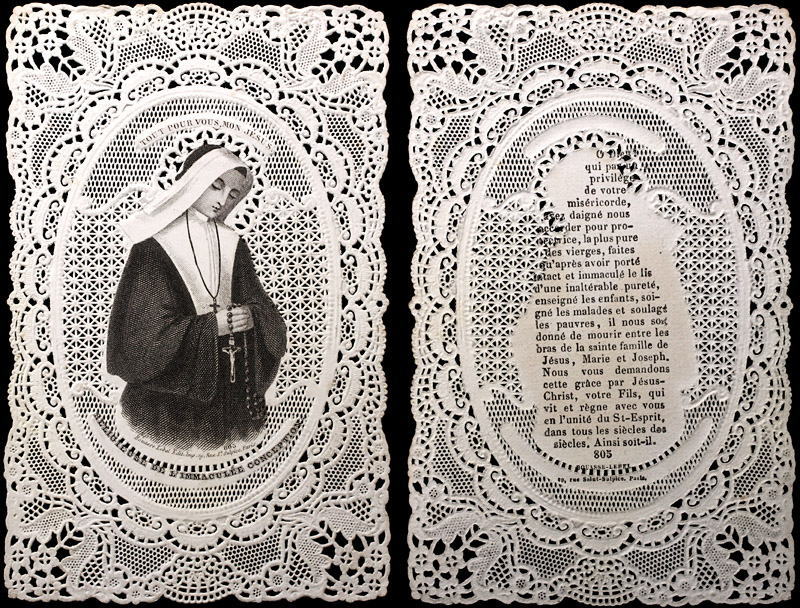 TOUT POUR VOUS, MON JÉSUS
805
DE L'IMMACULÉE CONCEPTION
O
qui par
privilège
de votre
miséricorde,
daigné nous
accorder pour pro-
tectrice, la plus pure
des vierges, faites
qu'après avoir porté
intact et immaculé le lis
d'une inaltérable pureté,
enseigné les enfants, soi-
gné les malades et soulagé
les pauvres, il nous soit
donné de mourir entre les
bras de la sainte famille de
Jésus, Marie et Joseph.
Nous vous demandons
cette grâce par Jésus-
Christ, votre Fils, qui
vit et règne avec vous
en l'unité du St-Esprit,
dans tous les siècles des
siècles. Ainsi soit-il.
805
BOUASSE-LEBEL
29, rue Saint-Sulpice, Paris.